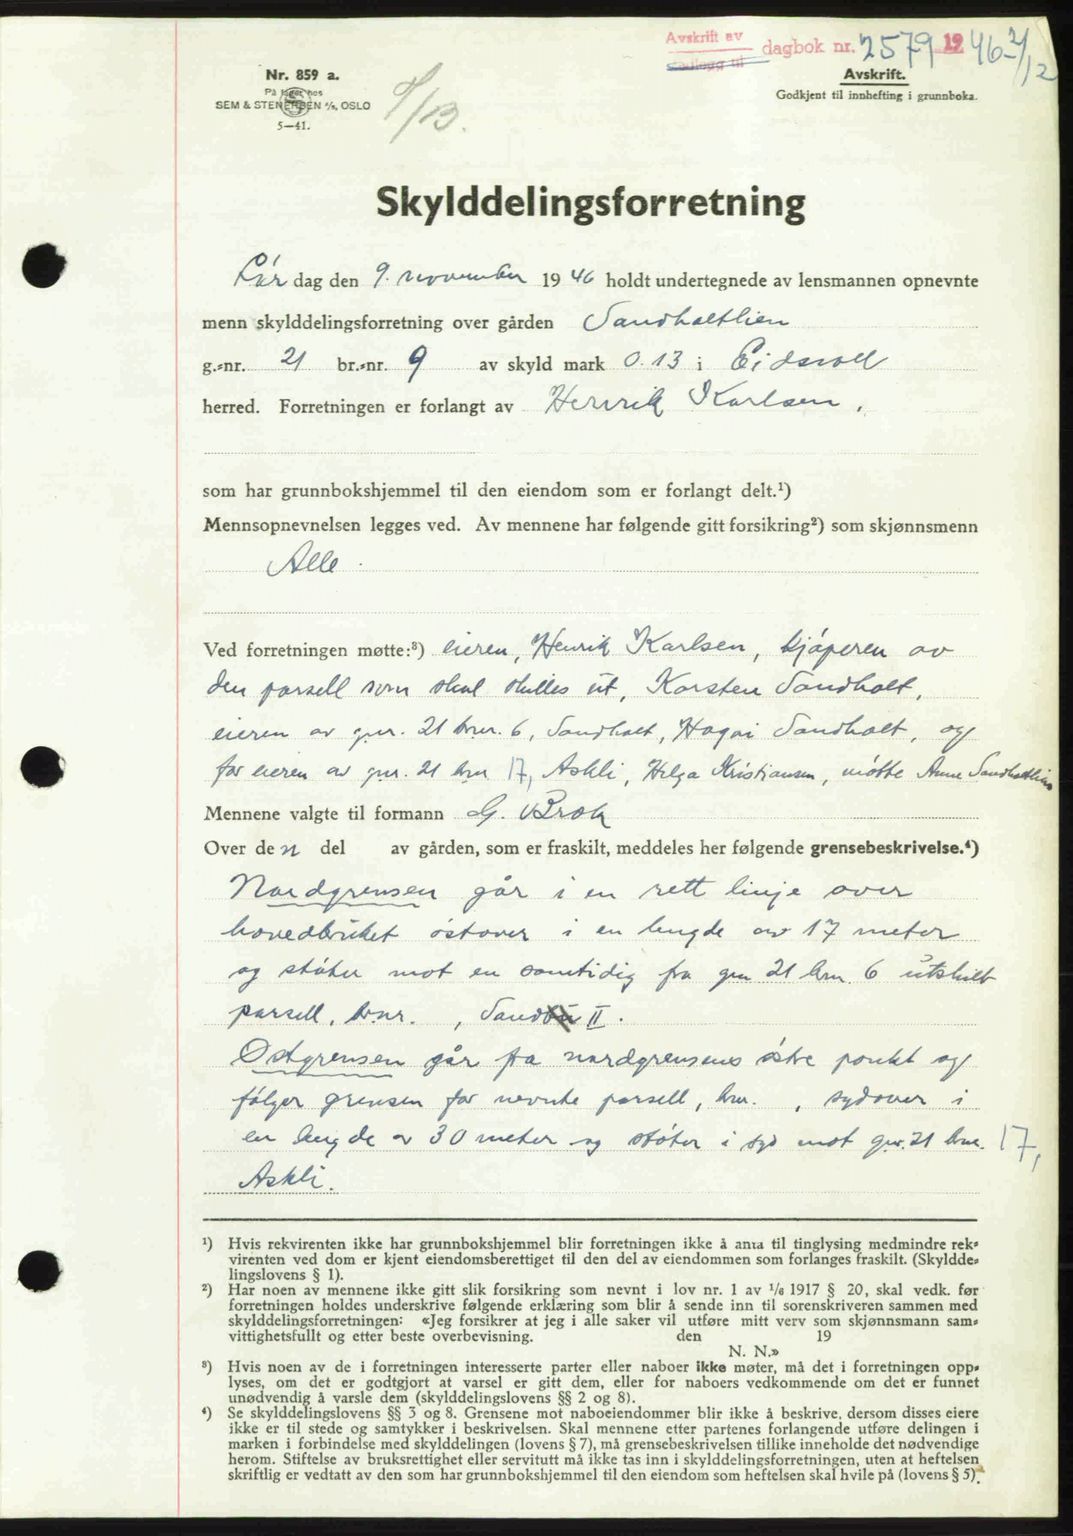 Avskrift av
dagbok nr. 2579 1946 2/12
Nr. 859 a.
På lager hos
SEM & STENERSEN A/S, OSLO
5—41.
Avskrift.
Godkjent til innhefting i grunnboka.
Skylddelingsforretning
Lør dag den 9. november 1946 holdt undertegnede av lensmannen opnevnte
menn skylddelingsforretning over gården Sandholtlien
g.-nr. 21 br.-nr. 9 av skyld mark 0.13 i Eidsvoll
herred. Forretningen er forlangt av Henrik Karlsen,
som har grunnbokshjemmel til den eiendom som er forlangt delt.¹)
Mennsopnevnelsen legges ved. Av mennene har følgende gitt forsikring²) som skjønnsmenn
Alle.
Ved forretningen møtte:³) eieren, Henrik Karlsen, kjøperen av
den parsell som skal skilles ut, Karsten Sandholt,
eieren av gnr. 21 bnr. 6, Sandholt, Hagai Sandholt, og
for eieren av gnr. 21 bnr 17, Askli, Helga Kristiansen, møtte Anne Sandholtlien
Mennene valgte til formann G. Brok
Over den del av gården, som er fraskilt, meddeles her følgende grensebeskrivelse.⁴)
Nordgrensen går i en rett linje over
hovedbruket østover i en lengde av 17 meter
og støter mot en samtidig fra gnr 21 bnr. 6 utskilt
parsell, bnr. , Sand II.
Østgrensen går fra nordgrensens østre punkt og
følger grensen for nevnte parsell, bnr. , sydover i
en lengde av 30 meter og støter i syd mot gnr. 21 bnr. 17,
Askli.
¹) Hvis rekvirenten ikke har grunnbokshjemmel blir forretningen ikke å anta til tinglysing medmindre rek-
virenten ved dom er kjent eiendomsberettiget til den del av eiendommen som forlanges fraskilt. (Skyldde-
lingslovens § 1).
²) Har noen av mennene ikke gitt slik forsikring som nevnt i lov nr. 1 av 1/6 1917 § 20, skal vedk. før
forretningen holdes underskrive følgende erklæring som blir å sende inn til sorenskriveren sammen med
skylddelingsforretningen: «Jeg forsikrer at jeg i alle saker vil utføre mitt verv som skjønnsmann sam-
vittighetsfullt og etter beste overbevisning. den 19
N. N.»
³) Hvis noen av de i forretningen interesserte parter eller naboer ikke møter, må det i forretningen opp-
lyses, om det er godtgjort at varsel er gitt dem, eller for naboers vedkommende om det er funnet
unødvendig å varsle dem (skylddelingslovens §§ 2 og 8).
⁴) Se skylddelingslovens §§ 3 og 8. Grensene mot naboeiendommer blir ikke å beskrive, dersom disses eiere
ikke er til stede og samtykker i beskrivelsen. Skal mennene etter partenes forlangende utføre delingen i
marken i forbindelse med skylddelingen (lovens § 7), må grensebeskrivelsen tillike inneholde det nødvendige
herom. Stiftelse av bruksrettighet eller servitutt må ikke tas inn i skylddelingsforretningen, uten at heftelsen
skriftlig er vedtatt av den som har grunnbokshjemmel til den eiendom som heftelsen skal hvile på (lovens § 5).